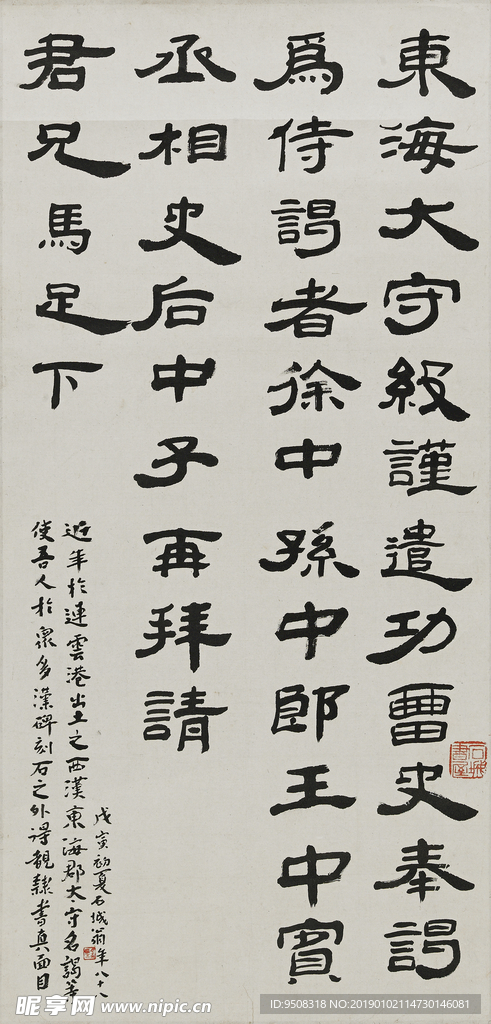 東海大守級謹遣功曹史奉謁
爲侍謁者徐中孫中郎王中賓
丞相史后中子再拜請
君兄馬足下
近年於連雲港出土之西漢東海郡太守名謁等
使吾人於衆多漢碑刻石之外得觀隸書真面目
戊寅初夏石城翁年八十八
昵享网 www.nipic.cn
ID:9508318 NO:20190102114730146081